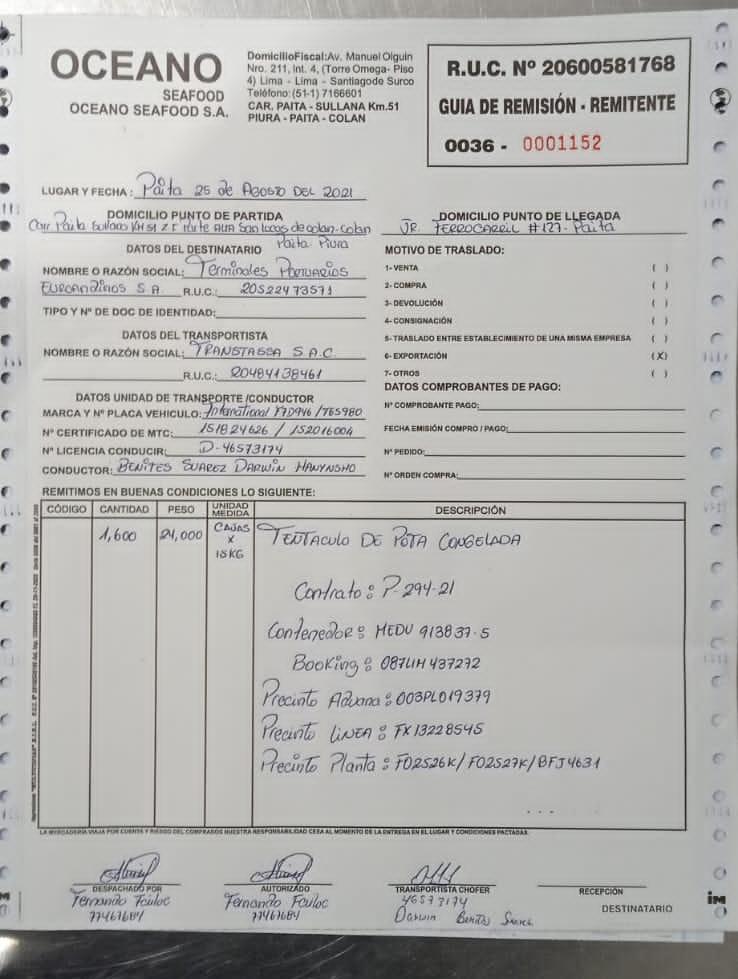 OCEANO
SEAFOOD
OCEANO SEAFOOD S.A.
Domicilio Fiscal: Av. Manuel Olguin
Nro. 211, Int. 4, (Torre Omega- Piso
4) Lima - Lima - Santiagode Surco
Teléfono: (51-1) 7166601
CAR. PAITA - SULLANA Km.51
PIURA - PAITA - COLAN
R.U.C. Nº 20600581768
GUIA DE REMISIÓN - REMITENTE
0036 - 0001152
LUGAR Y FECHA: Paita 25 de Agosto DEL 2021
DOMICILIO PUNTO DE PARTIDA
Carr Paita Sullana KM 51 Z.I Parte Alta San Lucas de colan-colan
Paita Piura
DOMICILIO PUNTO DE LLEGADA
JR. FERROCARRIL #127- Paita
DATOS DEL DESTINATARIO
NOMBRE O RAZÓN SOCIAL: Terminales Portuarios
Euroandinos S A. R.U.C.: 20522473571
TIPO Y Nº DE DOC DE IDENTIDAD:
DATOS DEL TRANSPORTISTA
NOMBRE O RAZÓN SOCIAL: TRANSTASSA S.A.C.
R.U.C.: 20484138461
DATOS UNIDAD DE TRANSPORTE /CONDUCTOR
MARCA Y Nº PLACA VEHICULO: International / T6S980
Nº CERTIFICADO DE MTC: 151824626 / 152016004
Nº LICENCIA CONDUCIR: D-46573174
CONDUCTOR: BENITES SUAREZ DARWIN MANYNSHO
MOTIVO DE TRASLADO:
1- VENTA ( )
2- COMPRA ( )
3- DEVOLUCIÓN ( )
4- CONSIGNACIÓN ( )
5- TRASLADO ENTRE ESTABLECIMIENTO DE UNA MISMA EMPRESA ( )
6- EXPORTACIÓN (X)
7- OTROS ( )
DATOS COMPROBANTES DE PAGO:
Nº COMPROBANTE PAGO:
FECHA EMISIÓN COMPRO / PAGO:
Nº PEDIDO:
Nº ORDEN COMPRA:
REMITIMOS EN BUENAS CONDICIONES LO SIGUIENTE:
CÓDIGO CANTIDAD PESO UNIDAD MEDIDA DESCRIPCIÓN
1,600 24,000 CAJAS X 15KG TENTACULO DE POTA CONGELADA
Contrato: P-294-21
Contenedor: MEDU 913837-5
Booking: 087LIM437272
Precinto Aduana: 003PL019379
Precinto LINEA: FX13228545
Precinto Planta: F02526K/ F02527K/ BFJ4631
LA MERCADERIA VIAJA POR CUENTA Y RIESGO DEL COMPRADOR NUESTRA RESPONSABILIDAD CESA AL MOMENTO DE LA ENTREGA EN EL LUGAR Y CONDICIONES PACTADAS.
DESPACHADO POR
Fernando Fculoc
77467684
AUTORIZADO
Fernando Fculoc
77467684
TRANSPORTISTA CHOFER
46573174
Darwin Benites Suarez
RECEPCIÓN
DESTINATARIO
im